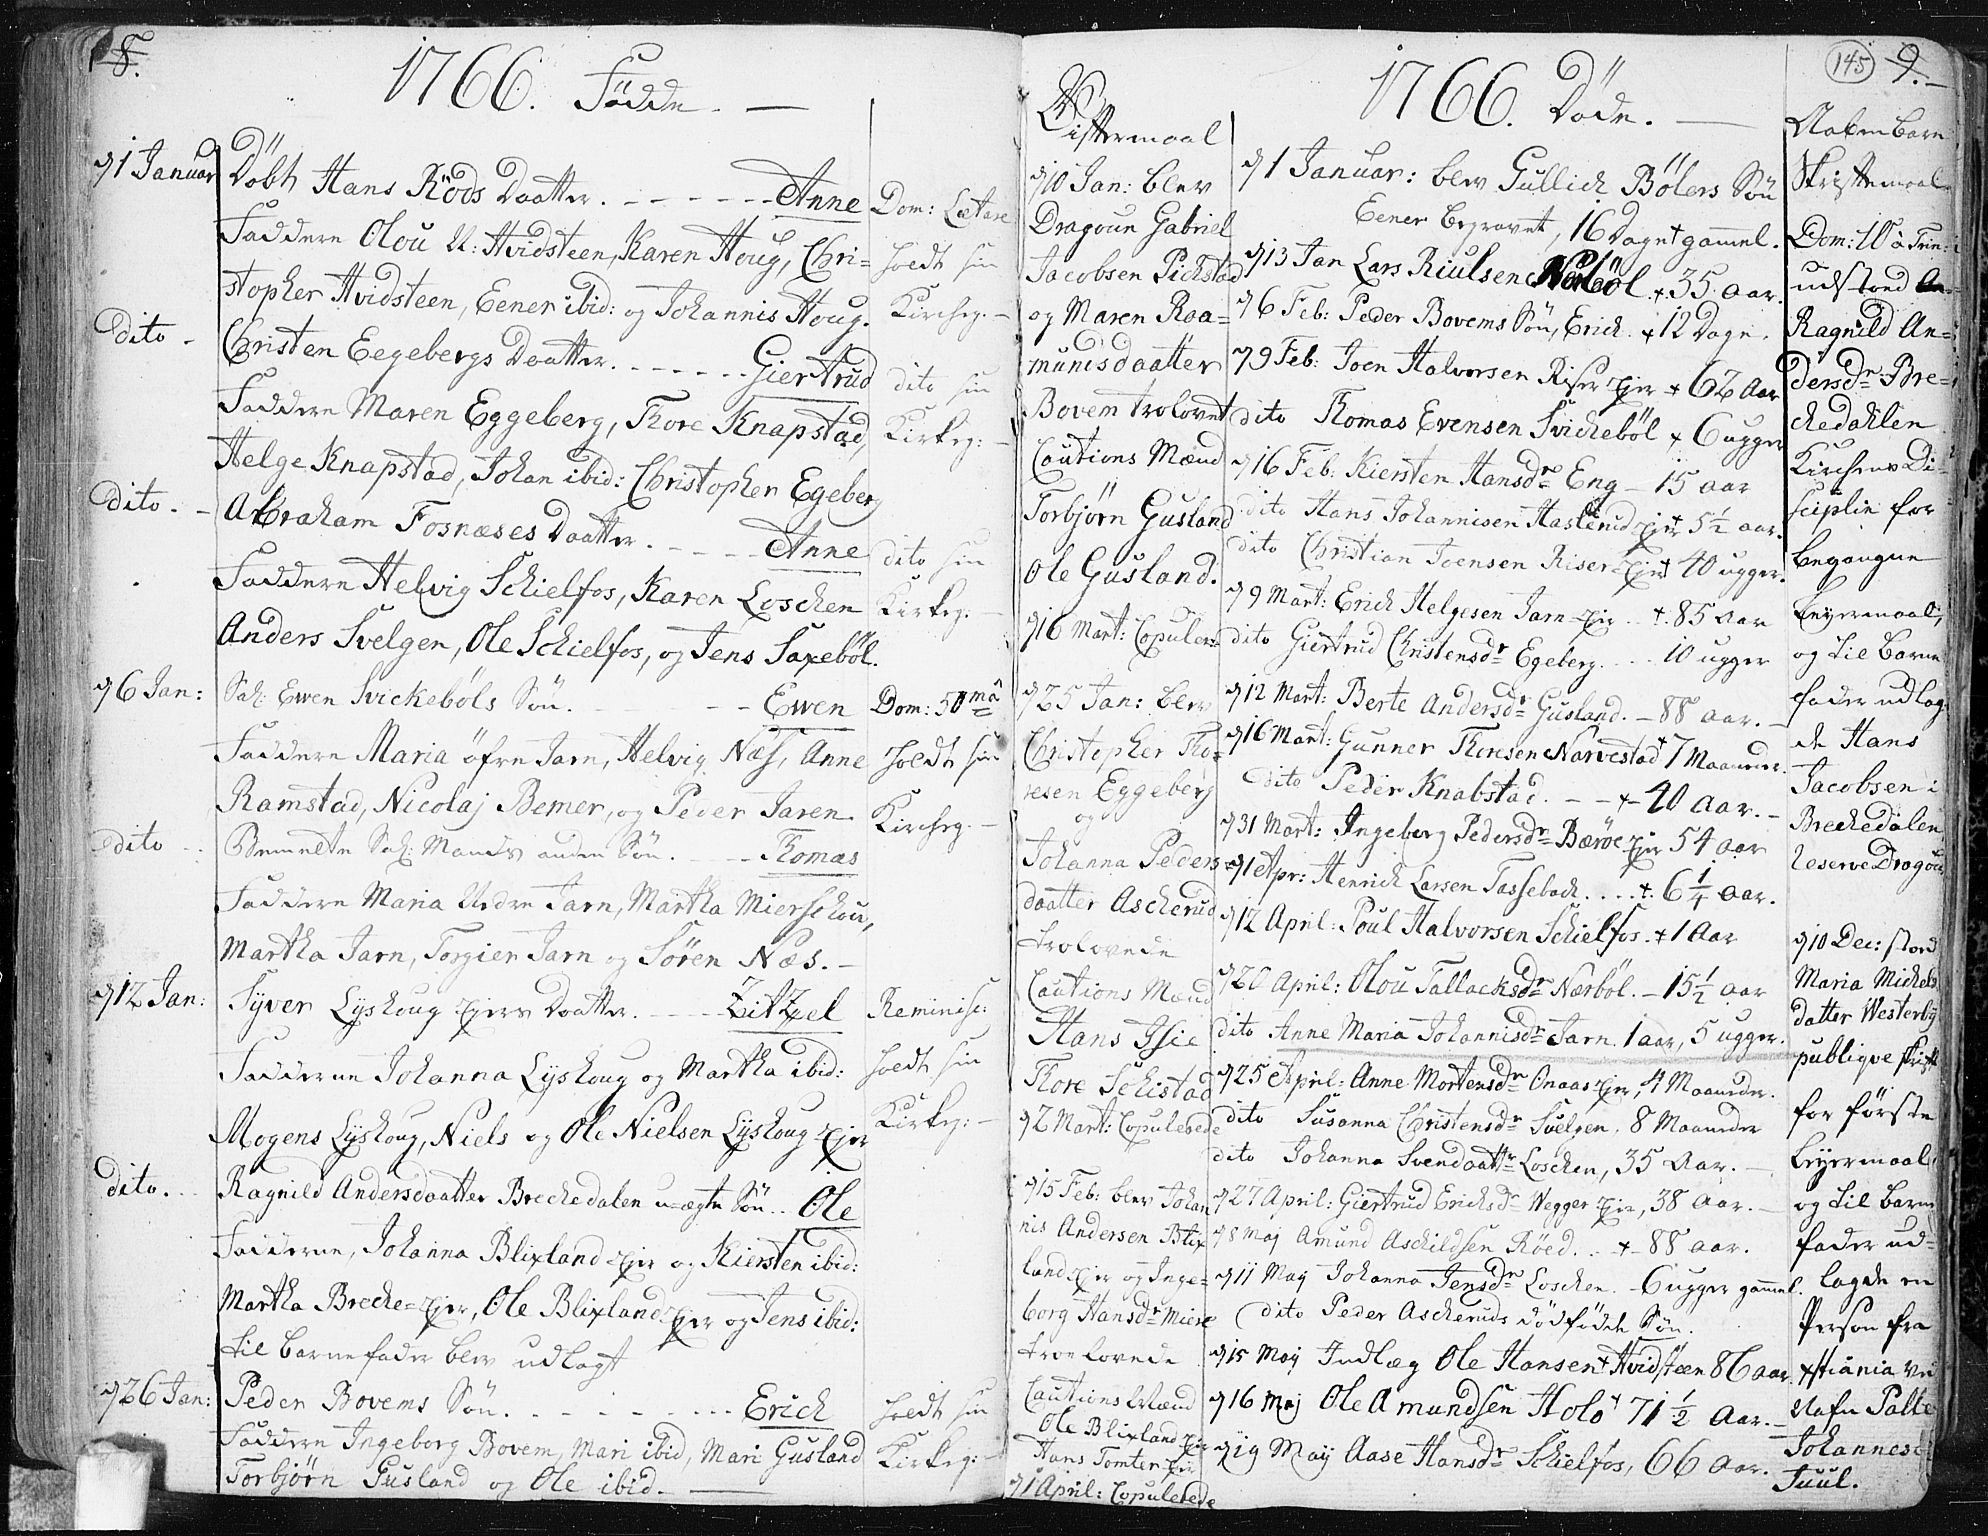 8.
1766. Födde. —
d 1 Januar Döbt Hans Röds Daatter. - - - - - - - Anne
Faddere Olou N: Hvidsteen, Karen Houg, Chri=
stopher Hvidsteen, Eener ibid: og Johannis Houg.
Dom: Lætare
holdt sin
Kirchg. -
Dito - Christen Eegebergs Daatter. - - - - - - Giertrud
Faddere Maren Eggeberg, Thore Knapstad,
Helge Knapstad, Johan ibid: Christopher Egeberg
dito sin
Kirkeg: -
Dito. - Abraham Fosnæses Daatter. - - - - Anne
Faddere Helvig Schielfos, Karen Loschen
Anders Svelgen, Ole Schielfos, og Jens Saxeböl.
dito sin
Kirkeg: -
d 6 Jan: Sal: Ewen Svickeböls Sön. - - - - - Ewen
Faddere Maria öfre Jarn, Helvig Næs, Anne
Ramstad, Nicolaj Bemer, og Peder Jaren
Dom: 50mâ
holdt sin
Kirchg. -
dito - Bemelte Sal: Mands anden Sön. - - - Thomas
Faddere Maria Nedre Jarn, Martha Mierschou,
Martha Jarn, Torgier Jarn og Sören Næs. -
d 12 Jan: Syver Lyshoug Ejers Daatter. - - - - Zitzel
Fadderne Johanna Lyshoug og Martha ibid:
Mogens Lyshoug, Niels og Ole Nielsen Lyshoug Ejer
Reminisc:
holdt sin
Kirkeg: -
dito. - Ragnild Andersdaatter Brechedalen uægte Sön. . Ole
Fadderne, Johanna Blixland Ejer og Kiersten ibid:
Martha Breche=Ejer, Ole Blixland Ejer og Jens ibid:
til Barnefader blev udlagt
d 26 Jan: Peder Bovems Sön. - - - - - - - - Erich
Faddere Ingeborg Bovem, Mari ibid, Mari Gusland
Torbjörn Gusland og Ole ibid. ———
holdt sin
Kirkeg: -
Giftermaal
d 10 Jan: blev
Dragoun Gabriel
Jacobsen Pichstad
og Maren Roa=
mundsdaatter
Bovem trolovet
Cautions Mænd
Torbjörn Gusland
Ole Gusland.
d 16 Mart: Copulered
d 25 Jan: blev
Christopher Tho=
resen Eggeberg
og
Johanna Peders=
daatter Ascherud
trolovede
Cautions Mænd
Hans Ihle
Thore Schistad
d 2 Mart: Copulerede
d 15 Feb: blev Johan
nis Andersen Blix
land Ejer og Inge=
borg Hansdr Miere
trolovede
Cautions Mænd
Ole Blixland Ejer
Hans Tomter Ejer
d 1 April: Copulerede
1766. Döde. —
d 1 Januar: blev Gullich Bölers Sön
Eener begravet, 16 Dage gammel.
d 13 Jan Lars Riulsen Næböl + 35 aar.
d 6 Feb: Peder Bovems Sön, Erich + 12 Dage.
d 9 Feb: Joen Halvorsen Riser Ejer + 62 aar
dito Thomas Evensen Svicheböl + 6 uger
d 16 Feb: Kiersten Hansdr Eng — 15 aar
dito Hans Johannisen Hasterud Ejer + 5½ aar.
dito Christian Joensen Riser Ejer + 40 uger.
d 9 Mart: Erich Helgesen Jarn Ejer . . + 85 aar
dito Giertrud Christensdr Egeberg. . . . 10 ugger
d 12 Mart: Berte Andersdr Gusland. - 88 aar. -
d 16 Mart: Gunner Thoresen Narvestad + 7 Maaneder.
dito Peder Knabstad. - - + 40 aar. -
d 31 Mart: Ingeborg Pedersdr Bæröe Ejer 54 aar
d 1 Apr: Henrich Larsen Tassebæch . . . . + 6 ¼ aar.
d 12 April: Poul Halvorsen Schielfos. + 1 aar
d 20 April: Olou Tallacksdr Nærböl. - 15½ aar
dito Anne Maria Johannisdr Jarn. 1 aar, 5 ugger.
d 25 April: Anne Mortensdr Onaas Ejer, 4 Maaneder.
dito Susanna Christensdr Svelgen. 8 Maaneder
dito Johanna Svendaattr Loschen, 35 Aar. -
d 27 April: Giertrud Erichsdr Wegger Ejer, 38 aar. -
d 8 Maj Amund Aschildsen Röed. . . + 88 aar.
d 11 Maij Johanna Jensdr Loschen. - 6 ugger gammel.
dito Peder Ascheruds dödfödde Sön.
d 15 Maij Indlæg Ole Hansen + Hvidsteen 86 aar
d 16 Maj Ole Amundsen Holö + 71 ½ aar. -
d 19 Maij Aase Hansdr Schielfos, 66 aar.
145 9. -
Aabenbare
Skriftemaal
Dom: 10 à Trin:
udstoed
Ragnild An=
dersdr Bre=
chedahlen
Kirchens Di=
sciplin for
begangne
Leyermaal,
og til Barne
fader udlag
de Hans
Jacobsen i
Brechedalen
Reserve Dragoun
d 10 Dec: stod
Maria Michels
datter Westerby
publiqve skrift
for förste
Leyermaal,
og til Barne
fader ud=
lagde en
Person fra
Xstiania ved
Nafn Palle
Johannes
Juul.